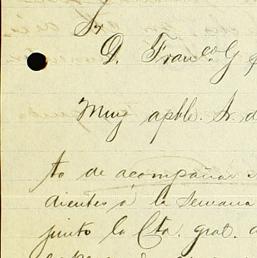 Sr
D. Franco. G
Muy apble. Sr. d
to de acompañar
dientes á la Semana
junto la Cta. gral.